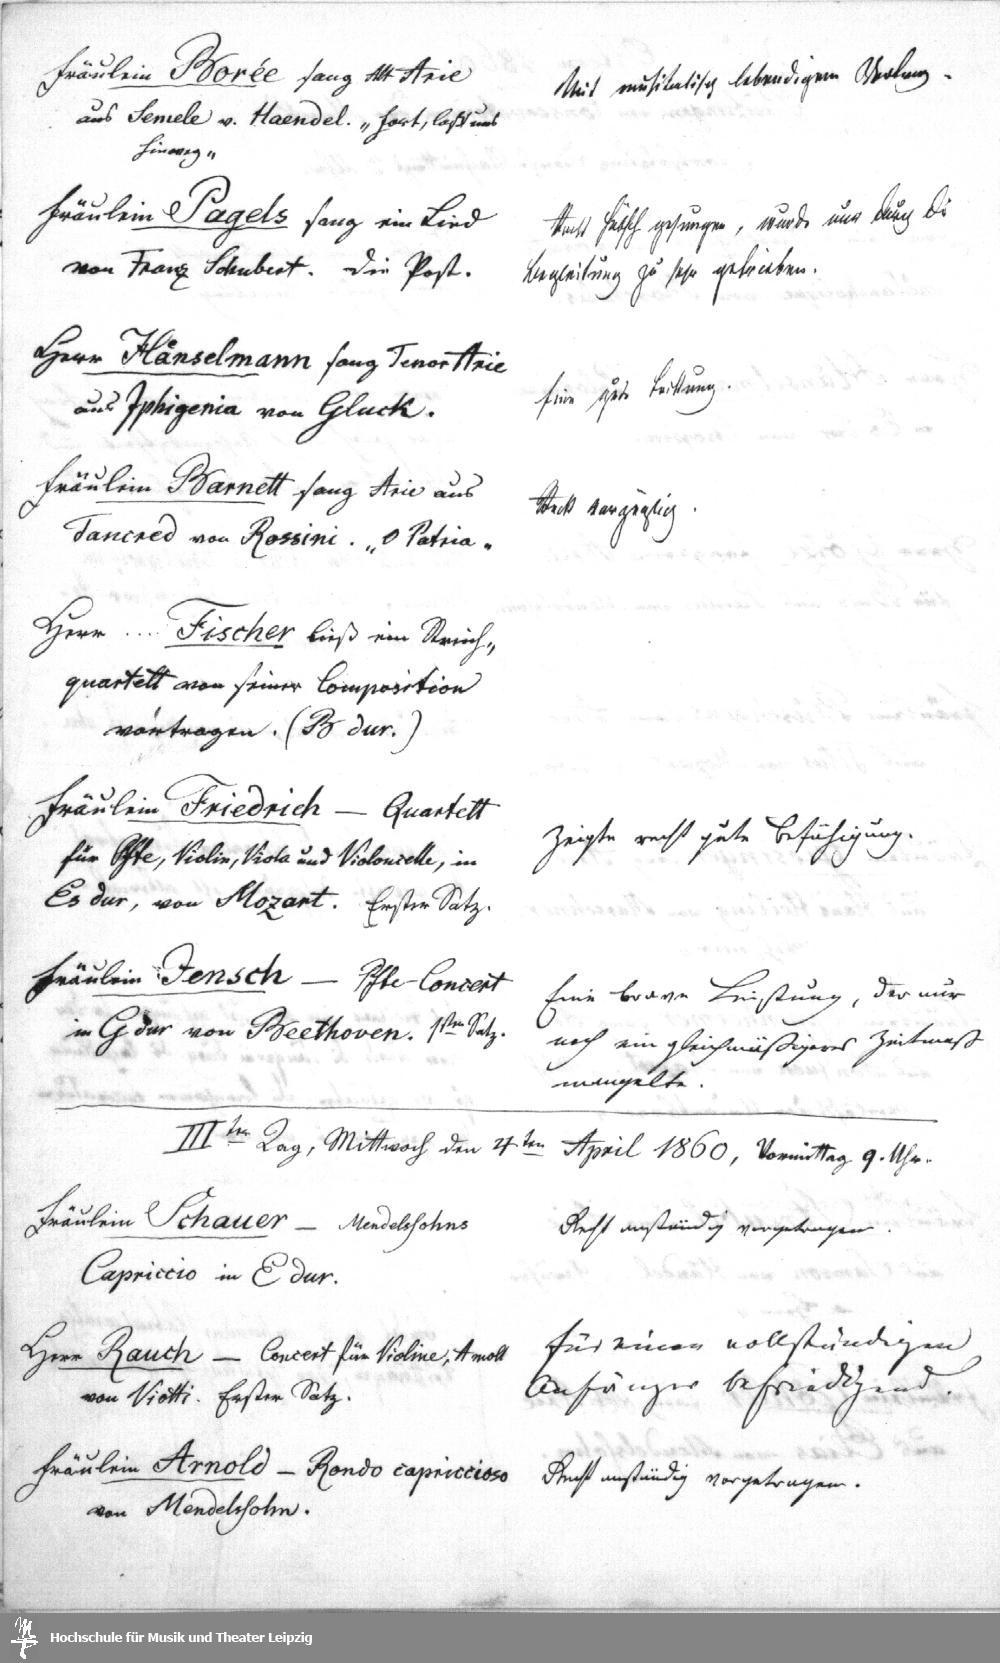 Fräulein Borée sang Alt Arie
aus Semele v. Haendel. „Fort, laßt uns
hinweg„
Mit musikalisch lebendigem Vortrag.
Fräulein Pagels sang ein Lied
von Franz Schubert. Die Post.
Recht hübsch gesungen, wurde nur durch die
Begleitung zu sehr getrieben.
Herr Hänselmann sang Tenor Arie
aus Iphigenia von Gluck.
Eine gute Leistung.
Fräulein Barnett sang Arie aus
Tancred von Rossini. „O Patria„
Recht vorzüglich.
Herr .... Fischer ließ ein Streich„
quartett von seiner Composition
vortragen. (B dur.)
Fräulein Friedrich — Quartett
für Pfte, Violin, Viola und Violoncelle, in
Es dur, von Mozart. Erster Satz.
Zeigte recht gute Befähigung.
Fräulein Jensch — Pfte-Concert
in G dur von Beethoven. 1ster Satz.
Eine brave Leistung, der nur
noch ein gleichmäßigeres Zeitmaß
mangelte.
IIIter Tag, Mittwoch den 4ten April 1860, Vormittag 9. Uhr.
Fräulein Schauer — Mendelssohns
Capriccio in E dur.
Recht anständig vorgetragen.
Herr Rauch — Concert für Violine, A moll
von Viotti. Erster Satz.
Für einen vollständigen
Anfänger befriedigend.
Fräulein Arnold — Rondo capriccioso
von Mendelssohn.
Recht anständig vorgetragen.
Hochschule für Musik und Theater Leipzig